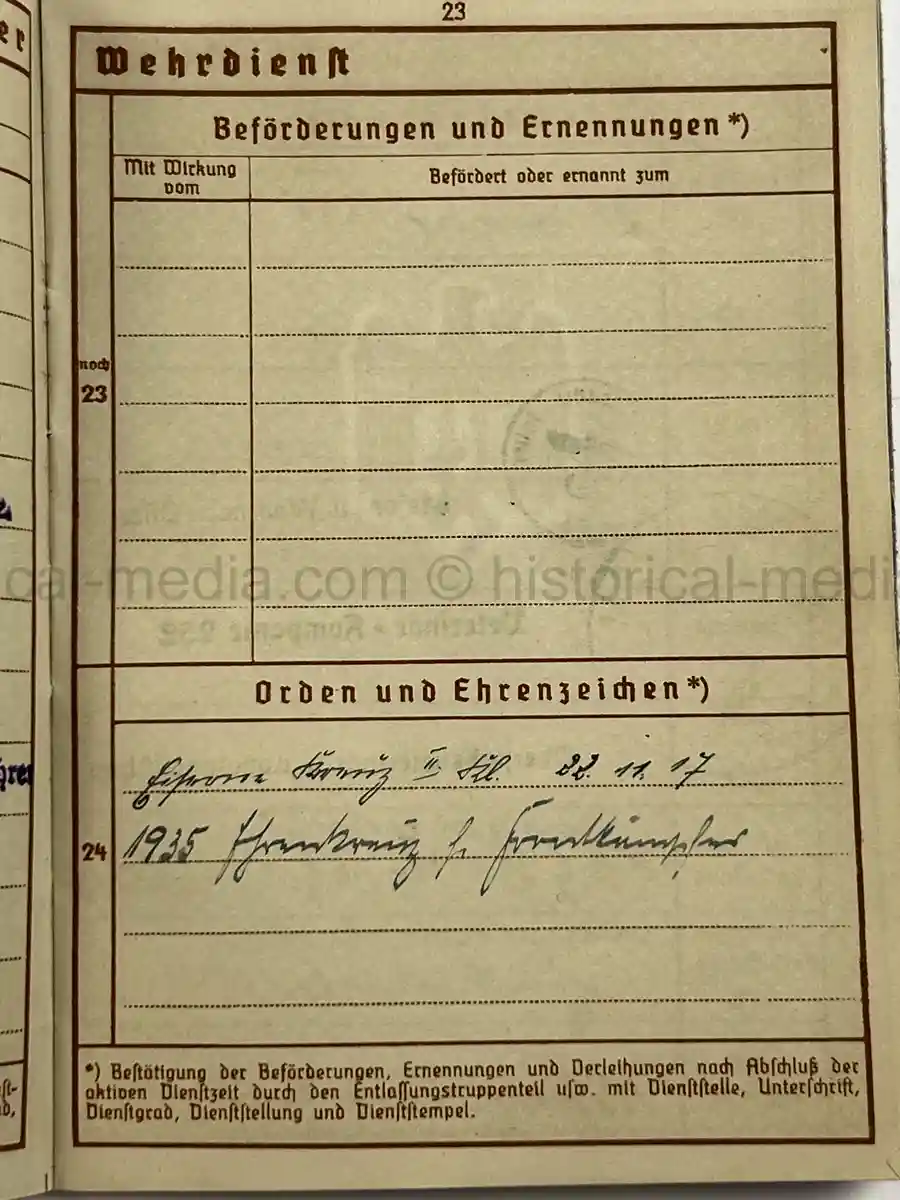 23
Wehrdienst
Beförderungen und Ernennungen *)
Mit Wirkung
vom
Befördert oder ernannt zum
noch
23
cal-media.com © historical-medi
Veterinär-Kompanie 252
Orden und Ehrenzeichen *)
Eiserne Kreuz II. Kl. 22. 11. 17
24
1935 Ehrenkreuz f. Frontkämpfer
*) Bestätigung der Beförderungen, Ernennungen und Verleihungen nach Abschluß der
aktiven Dienstzeit durch den Entlassungstruppenteil usw. mit Dienststelle, Unterschrift,
Dienstgrad, Dienststellung und Dienststempel.